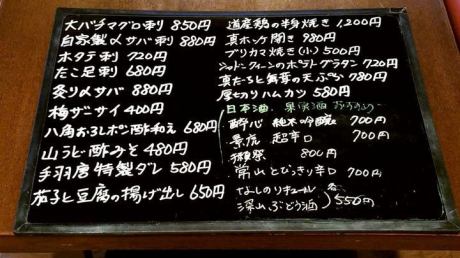 大バチマグロ刺 850円
自家製〆サバ刺 880円
ホタテ刺 720円
たこ足刺 680円
炙り〆サバ 880円
梅ザーサイ 400円
八角おろしポン酢和え 680円
山うど酢みそ 480円
手羽唐特製ダレ 580円
茄子と豆腐の揚げ出し 650円
道産鶏の半身焼き 1,200円
真ホッケ開き 980円
ブリカマ焼き(小) 500円
シャドークィーンのポテトグラタン 720円
真だちと舞茸の天ぷら 780円
厚切りハムカツ 580円
日本酒 果実酒
酔心 純米吟醸 700円
景虎 超辛口 700円
獺祭 800円
常山 とびっきり辛口 700円
なしのリキュール 各
深山ぶどう酒 550円